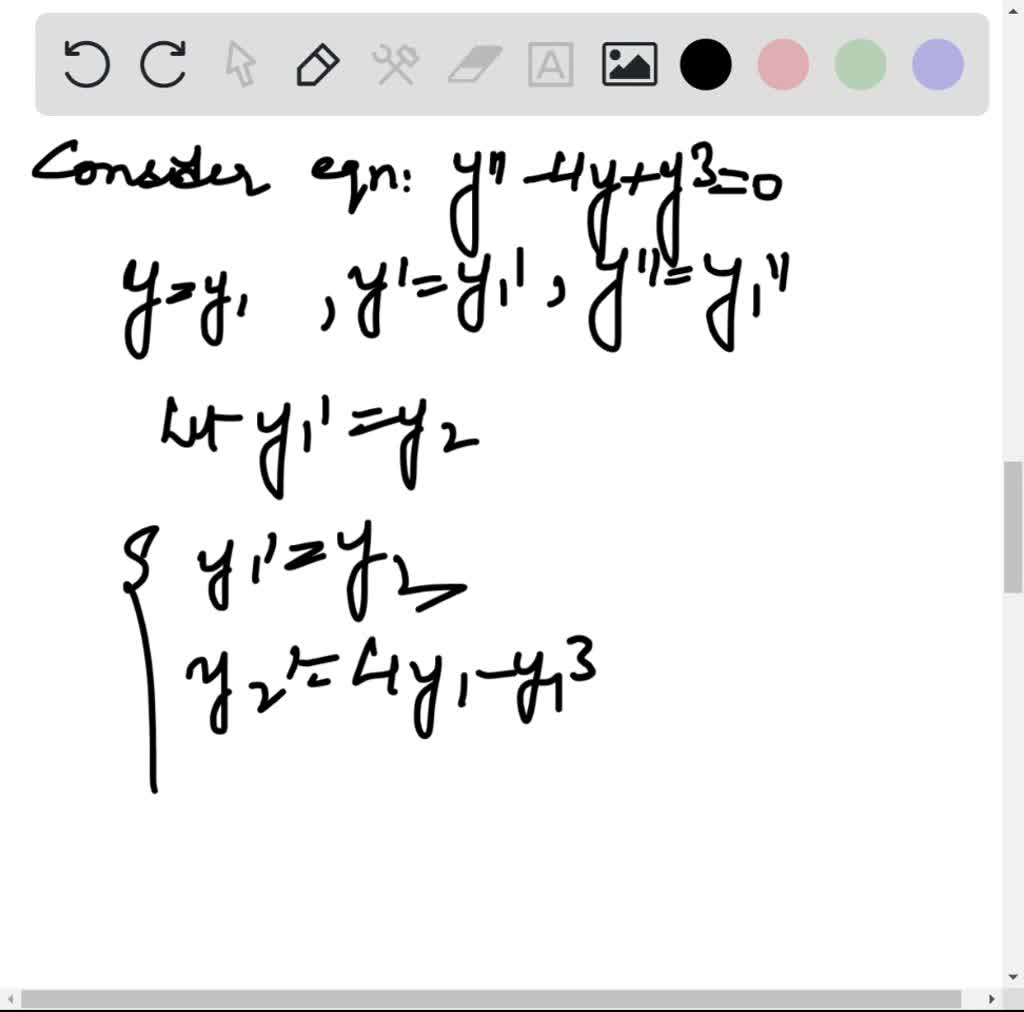 A
Consider eqn: y" - 4y + y³ = 0
y = y₁ , y' = y₁' , y" = y₁"
Let y₁' = y₂
{ y₁' = y₂
y₂' = 4y₁ - y₁³